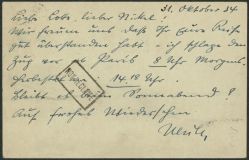 31. Oktober 34
Liebe Lobe, lieber Nickel!
Wir freuen uns daß Ihr Eure Reise
gut überstanden habt – ich schlage den
Zug vor ab Paris 8 Uhr Morgens.
14.18 Uhr.
bleibt es beim Sonnabend?
Auf frohes Wiedersehen